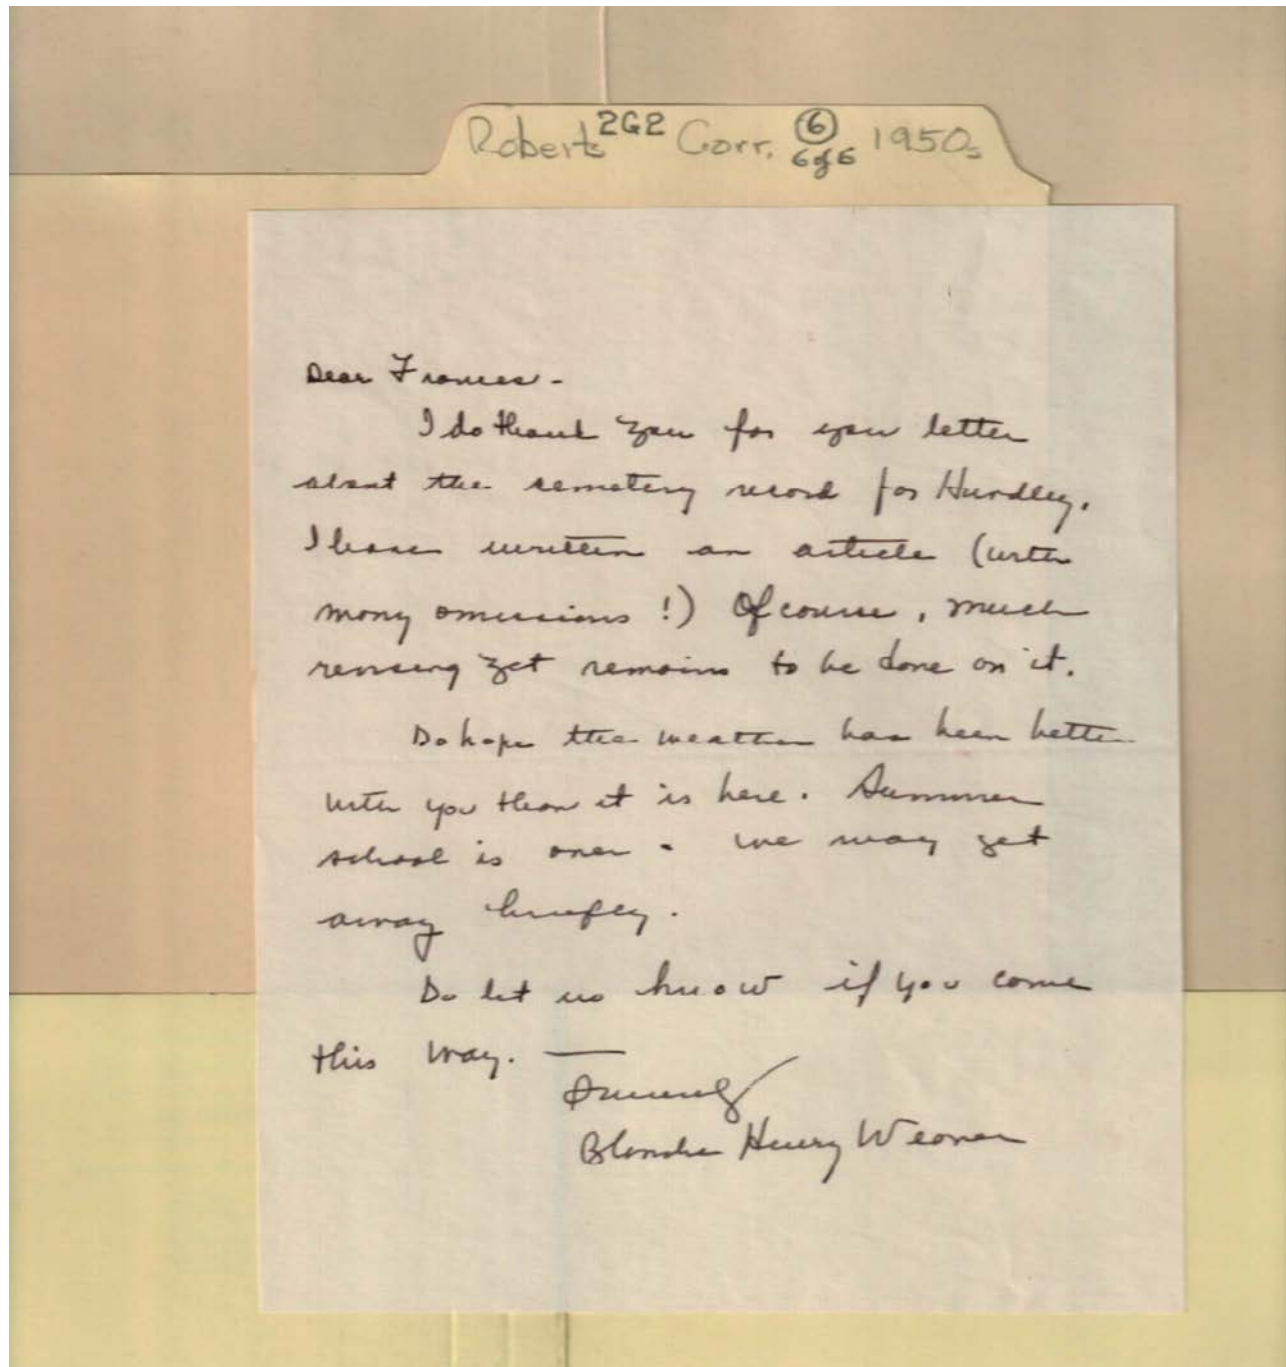 Roberts 2G2 Corr. 6 6 of 6 1950s
Dear Frances -
I do thank you for your letter
about the cemetery record for Hundley.
I have written an article (with
many omissions!) Of course, much
revising yet remains to be done on it.
Do hope the weather has been better
with you than it is here. Summer
school is over - we may get
away briefly.
Do let us know if you come
this way. —
Sincerely
Blanche Henry Weaver